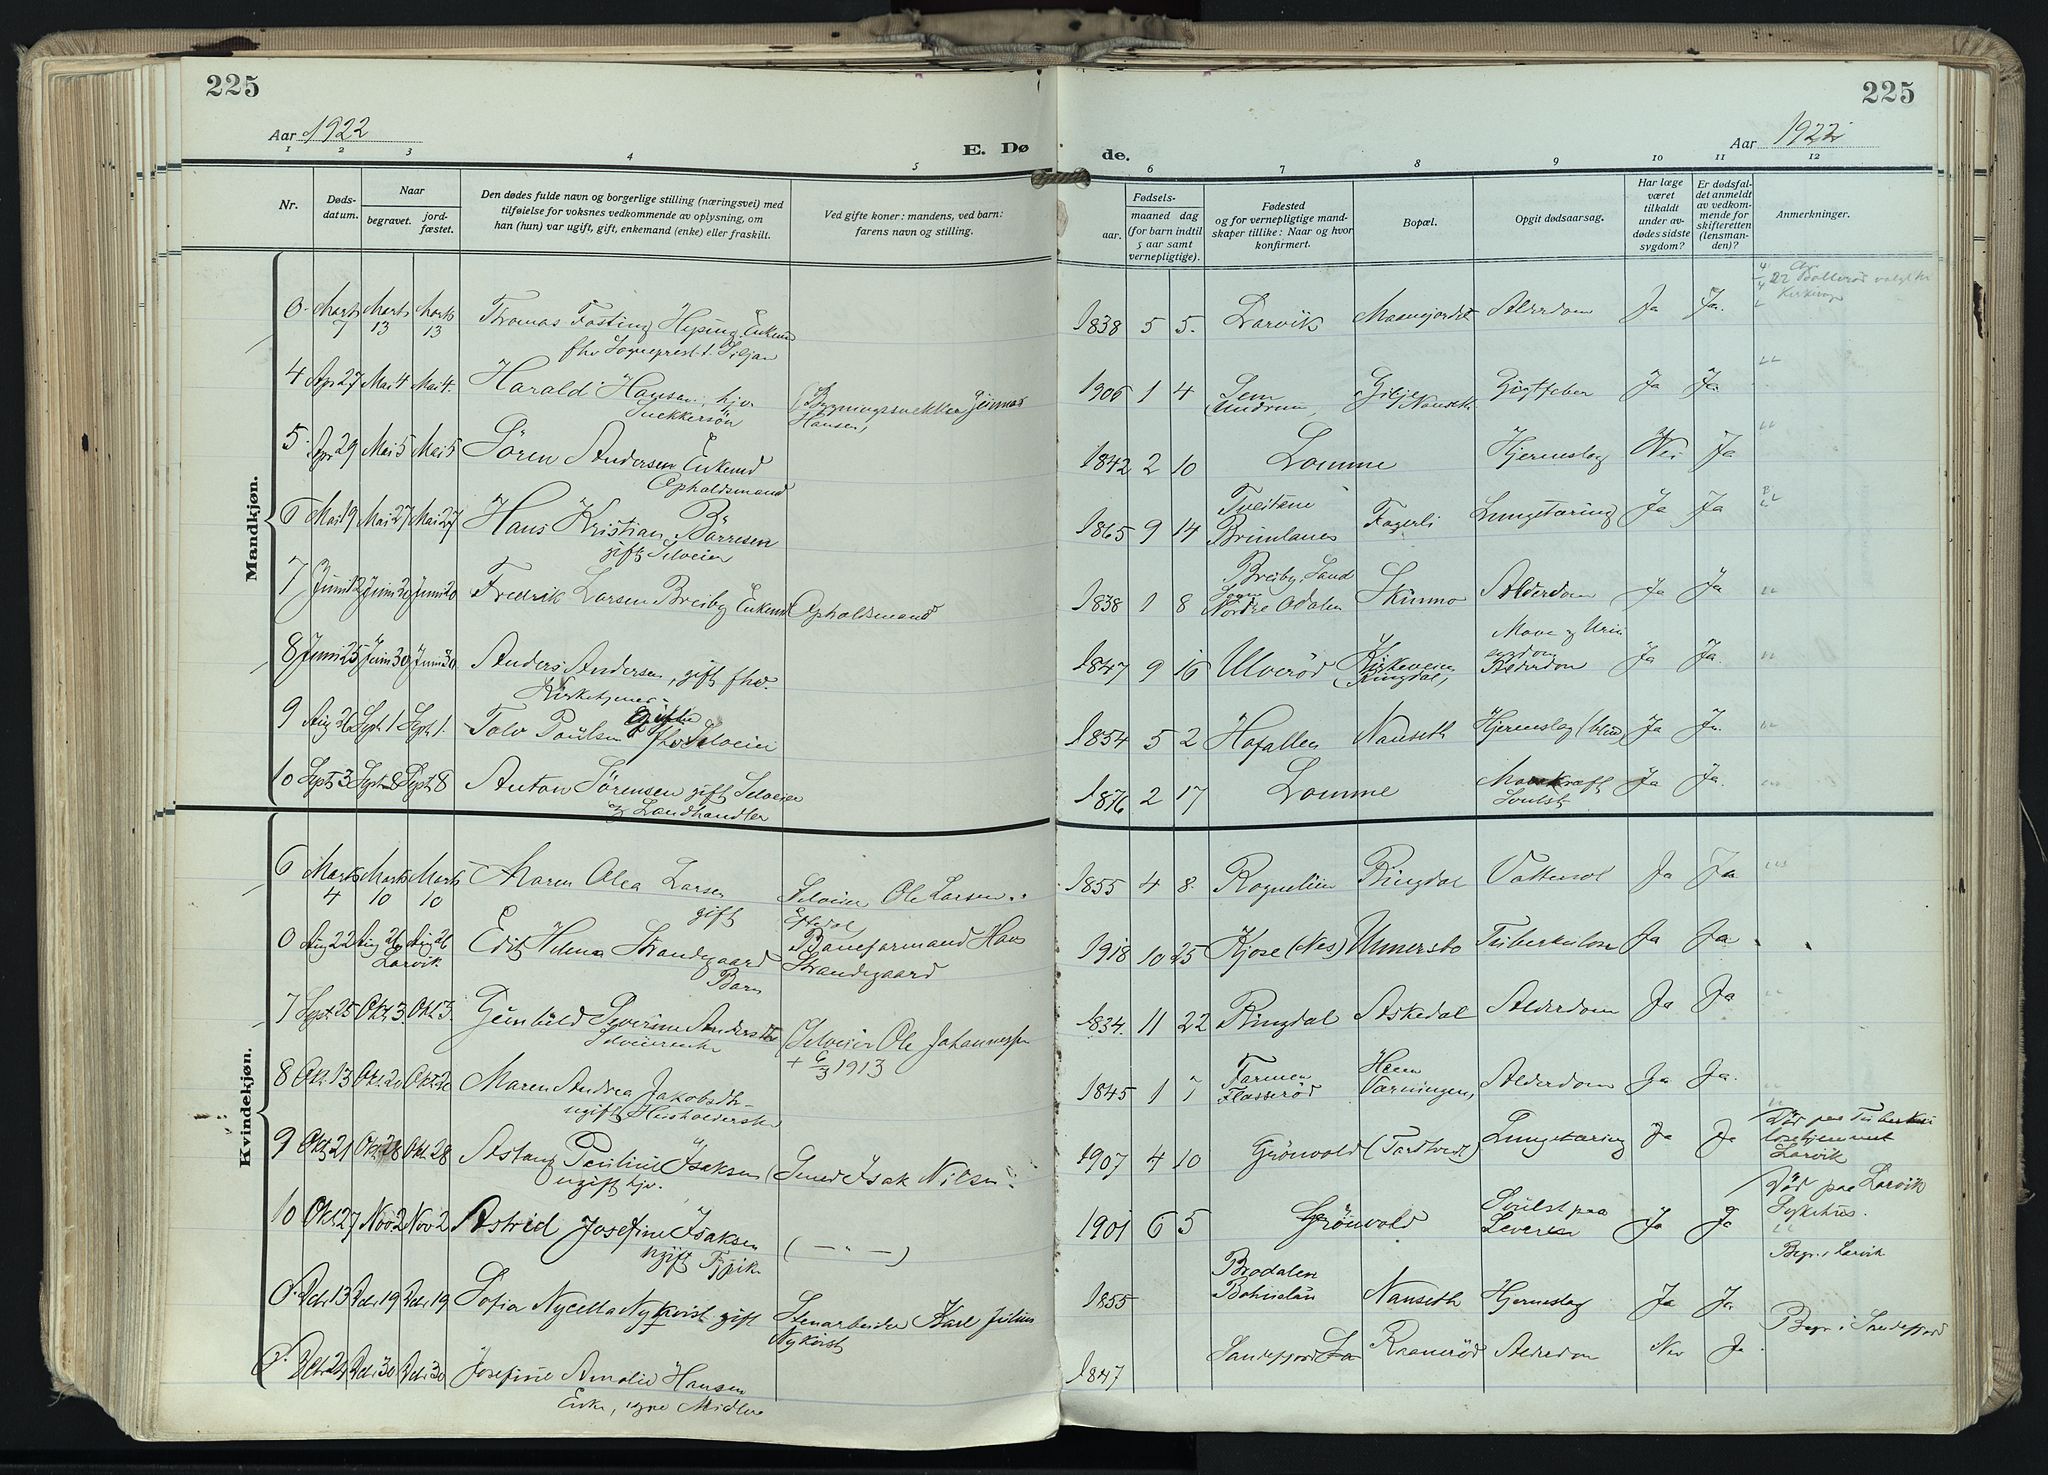 225
225
Aar 1922
E. Dø
de.
Aar 1922
1 2 3 4 5
6 7 8 9 10 11 12
Nr.
Døds-
datum.
Naar
begravet.
jord-
fæstet.
Den dødes fulde navn og borgerlige stilling (næringsvei) med
tilføielse for voksnes vedkommende av oplysning, om
han (hun) var ugift, gift, enkemand (enke) eller fraskilt.
Ved gifte koner: mandens, ved barn:
farens navn og stilling.
Fødsels-
aar.
maaned dag
(for barn indtil
5 aar samt
vernepligtige).
Fødested
og for vernepligtige mand-
skaper tillike: Naar og hvor
konfirmert.
Bopæl.
Opgit dødsaarsag.
Har læge
været
tilkaldt
under av-
dødes sidste
sygdom?
Er dødsfal-
det anmeldt
av vedkom-
mende for
skifteretten
(lensman-
den)?
Anmerkninger.
Mandkjøn.
0. Marts 7 Marts 13 Marts 13 Thomas Fasting Enkem
fhv Sogneprest i Siljan
1838 5 5. Larvik Alderdom Ja Ja.
4 Apr 27 Mai 4 Mai 4. Harald Hansen, hjv.
Snekkersön
Hansen,
1906 1 4 Sem Gilje Nanseth Giftfeber Ja Ja.
5. Apr 29 Mai 5 Mai 5 Sören Andersen Enkemd
Opholdsmand
1842 2 10 Lomme Hjerneslag Nei Ja
6 Mai 19 Mai 27 Mai 27 Hans Kristian Börresen
gift Selveier
1865 9 14 Tveitane
Brunlanes Fagerli Lungetæring Ja Ja
7 Juni 12 Juni 20 Juni 20 Fredrik Larsen Breiby Enkemd Opholdsmand
1838 1 8 Breiby, Sand
Nordre Odalen Skinmo Alderdom Ja Ja
8 Juni 25 Juni 30 Juni 30 Anders Andersen, gift fhv.
Kirketjener
1847 9 16 Ulveröd Kirkeveien
Ringdal, Mave og Urin
sygdom
Alderdom Ja Ja.
9 Aug 26 Sept 1 Sept 1. Talv Paulsen fhv Selveier
1854 5 2 Hafallen Nanseth Hjerneslag Ja Ja.
10 Sept 3 Sept 8 Sept 8 Anton Sörensen gift Selveier
og Landhandler
1876 2 17 Lomme Mavekræft
Svulst Ja Ja.
Kvindekjøn.
6 Marts 4 Marts 10 Marts 10 Maren Olea Larsen
gift Selveier Ole Larsen
1855 4 8. Rognelien Ringdal Vattersot Ja Ja
0 Aug 22 Aug 26 Aug 26 Larvik Edit Helena Strandgaard
Barn Baneformand Hans
Strandgaard
1918 10 25 Kjose (Nes) Ummersbo Tuberkulose Ja Ja
7 Sept. 25 Okt. 3. Okt. 3 Gunhild Severine Andersdtr
Selveierenke (Selveier Ole Johannessen
+ 6/3 1913
1834. 11 22 Ringdal Askedal Alderdom Ja Ja
8 Okt. 13 Okt. 20 Okt. 20 Maren Andrea Jakobsdtr
ugift Husholderske
1845 1 7 Farmen
Flasseröd Heem
Varningen, Alderdom Ja Ja.
9 Okt 21 Okt 28 Okt. 28 Astang Pauline Isaksen
ugift hjv. (Smed Isak Nilsen.
1907 4 10 Grönvold (Tardtvedt) Lungetæring Ja Ja Död paa Tuberku
losehjemmet
Larvik
10 Okt. 27 Nov 2 Nov 2 Astrid Josefine Isaksen
ugift Fpike (— " —)
1901 6 5 Grönvold Svulst paa
Leveren Ja Ja Död paa Larvik
Sykehus.
Begr. i Larvik
0. Dcbr 13 Dcbr 19 Dcbr 19 Sofia Nycetta Nykvist gift Stenarbeider Karl Julius
Nykvist
1855 Brodalen
Bohuslän Nanseth Hjerneslag Ja Ja.
0. Dcbr. 24 Dcbr. 30 Dcbr. 30 Josefine Amalie Hansen
Enke, egne Midler
1847 Sandefjord Raaneröd Alderdom Nei Ja Begr. i Sandefjord